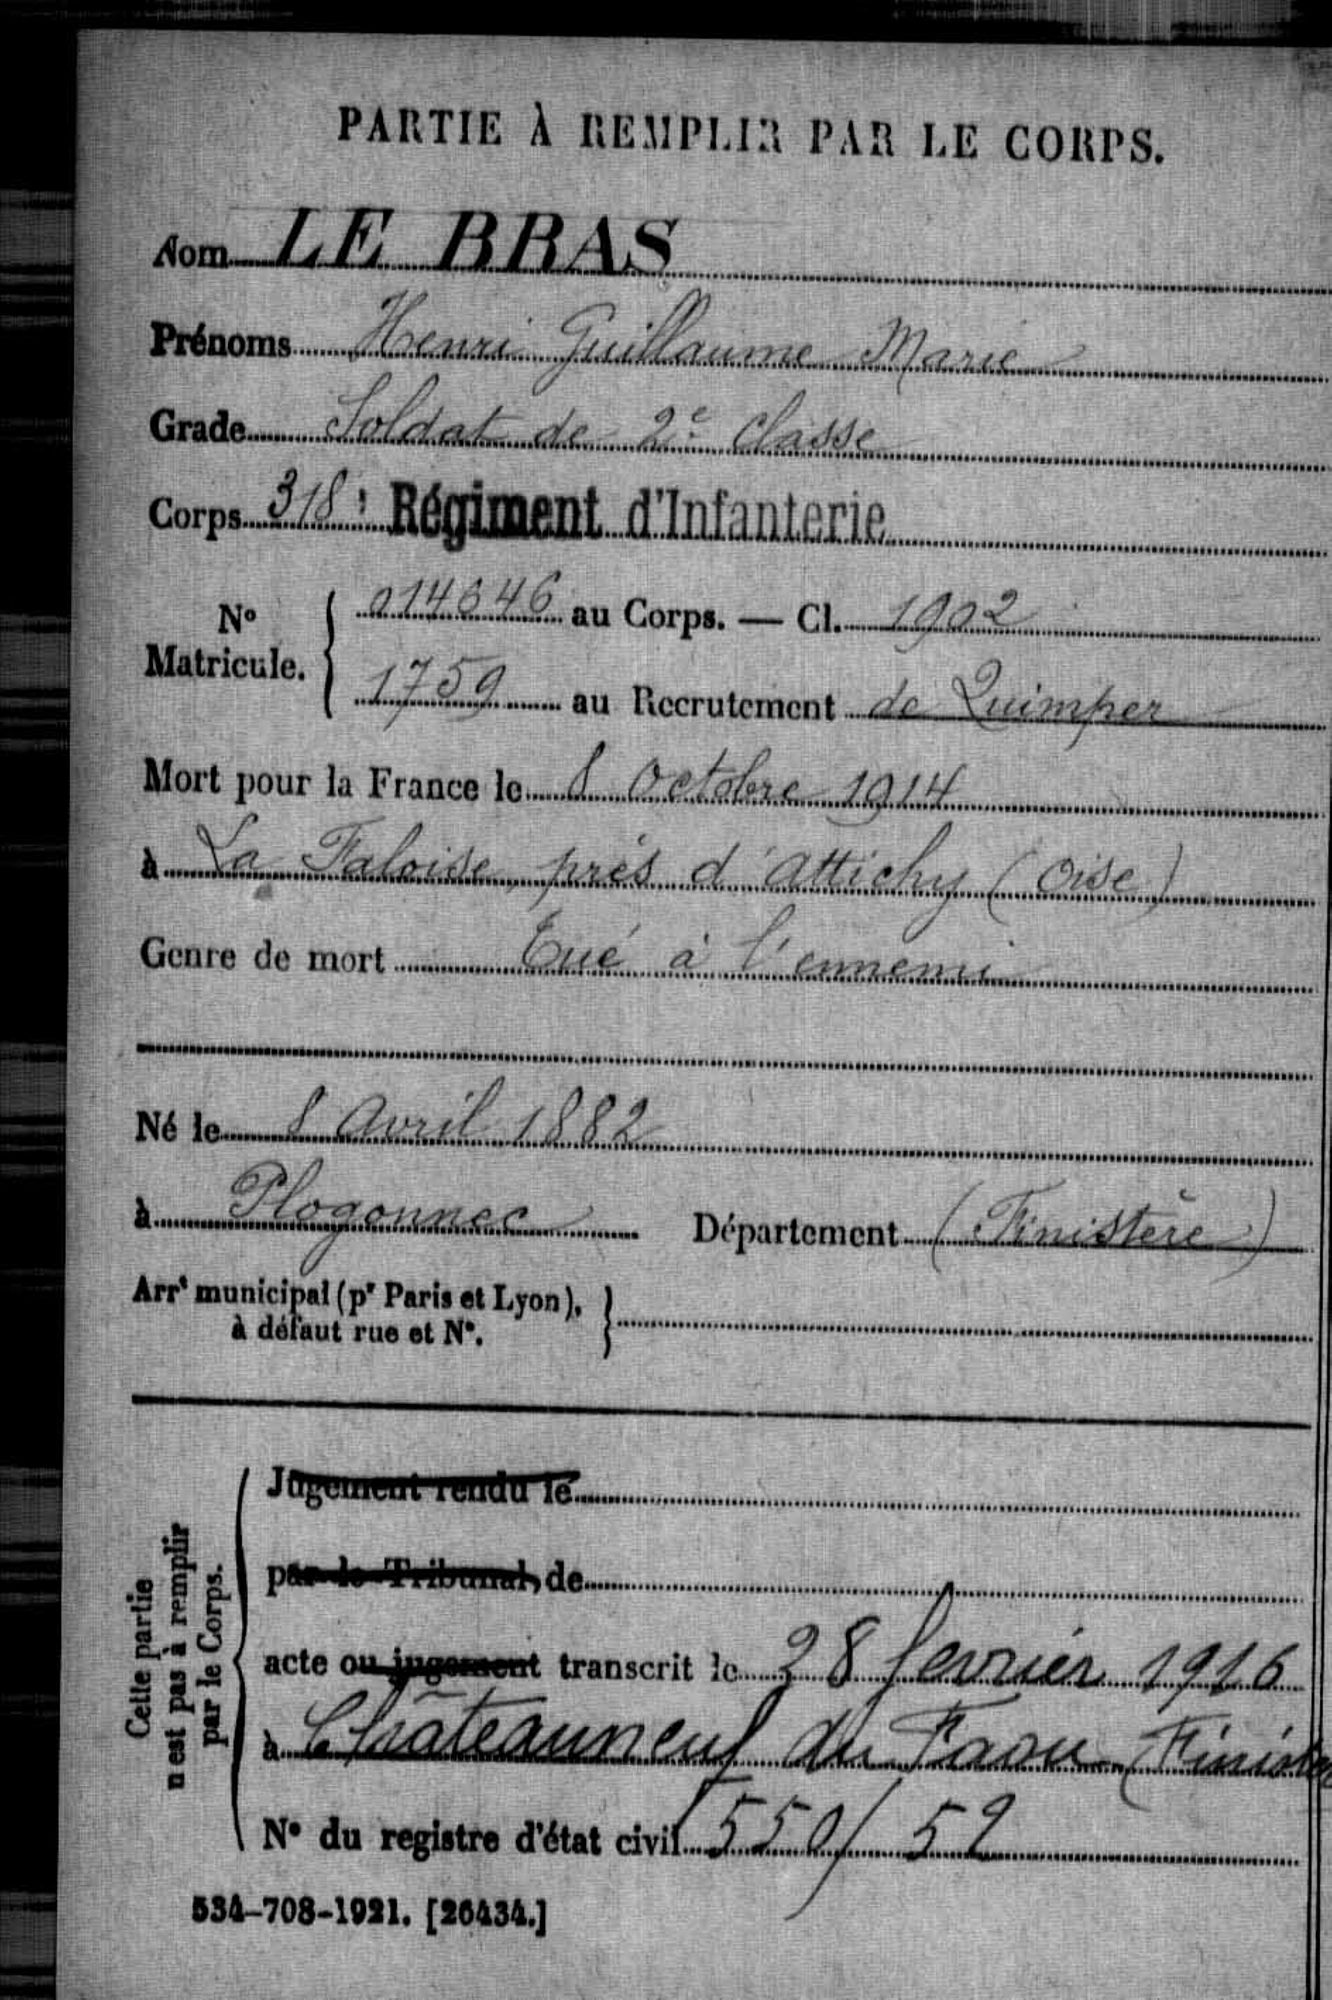 PARTIE À REMPLIR PAR LE CORPS.
Nom LE BRAS
Prénoms Henri Guillaume Marie
Grade Soldat de 2e Classe
Corps 318e Régiment d'Infanterie
No Matricule. { 014646 au Corps. — Cl. 1902
1759 au Recrutement de Quimper
Mort pour la France le 8 Octobre 1914
à La Faloise, près d'Attichy (Oise)
Genre de mort Tué à l'ennemi
Né le 8 Avril 1882
à Plogonnec Département (Finistère)
Arrt municipal (pr Paris et Lyon),
à défaut rue et No. }
Cette partie
n'est pas à remplir
par le Corps.
Jugement rendu le
par le Tribunal, de
acte ou jugement transcrit le 28 février 1916
à Châteauneuf du Faou (Finistère
No du registre d'état civil 550/52
534-708-1921. [26434.]